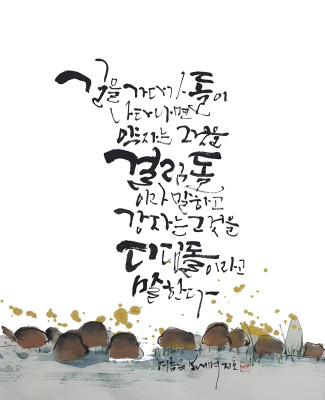 길을 가다가 돌이
나타나면
약자는 그것을
걸림돌
이라 말하고
강자는 그것을
디딤돌이라고
말한다